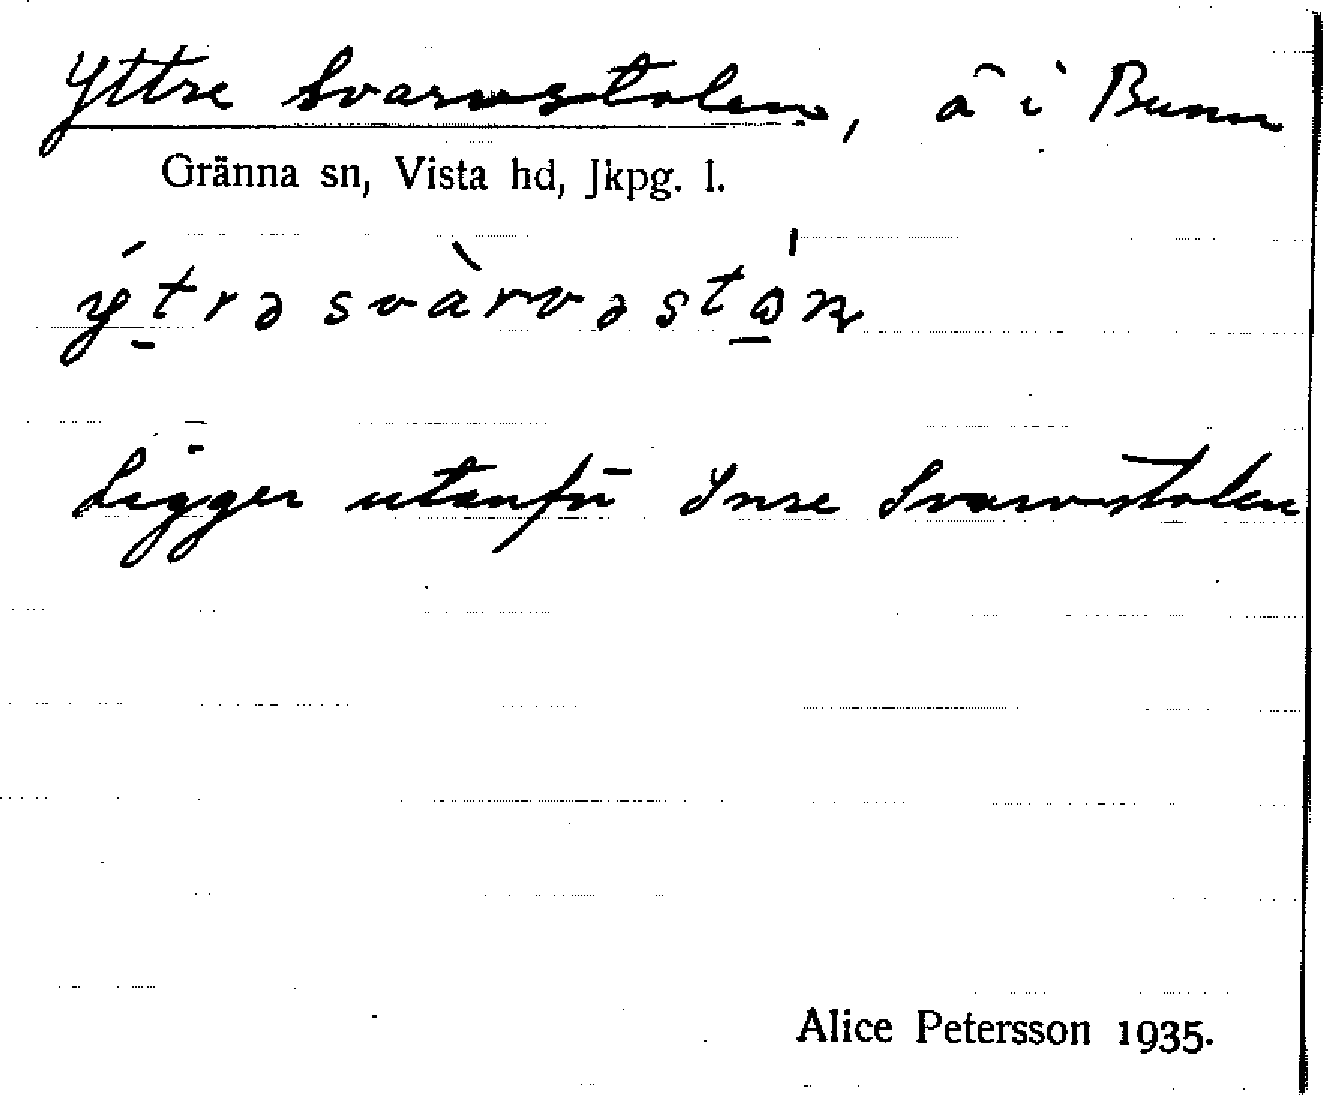 Yttre Svarvstolen, å i Bunn
Gränna sn, Vista hd, Jkpg. l.
ýtrə svàrvəstω̲n
Ligger utanför Inre Svarvstolen
Alice Petersson 1935.